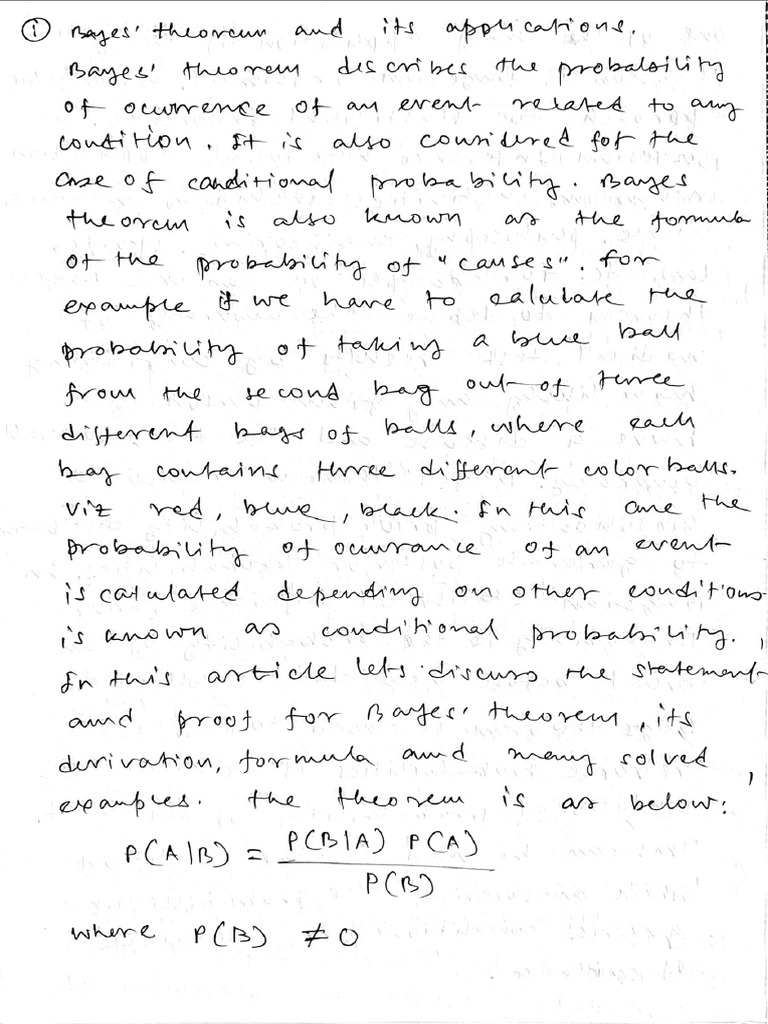 ① Bayes' theorem and its applications.
Bayes' theorem describes the probability
of ocurrence of an event related to any
condition. It is also considered for the
case of conditional probability. Bayes
theorem is also known as the formula
of the probability of "causes". for
example if we have to calulate the
probability of taking a blue ball
from the second bag out of three
different bags of balls, where each
bag contains three different color balls.
viz red, blue, black. In this one the
probability of ocurrance of an event
is calulated depending on other conditions
is known as conditional probability.
In this article lets discuss the statement
and proof for Bayes' theorem, its
derivation, formula and many solved
examples. the theorem is as below:
P(A|B) = P(B|A) P(A)
P(B)
where P(B) ≠ 0